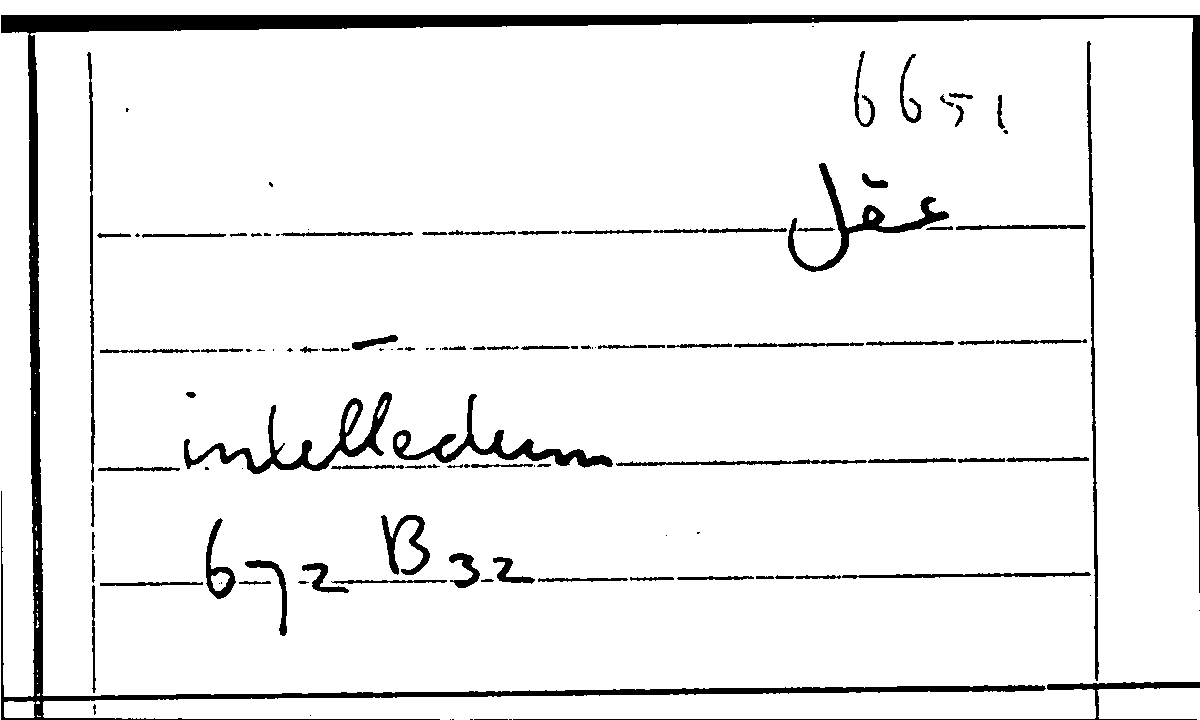 6651
عقل
—
intellectum
672 B 32